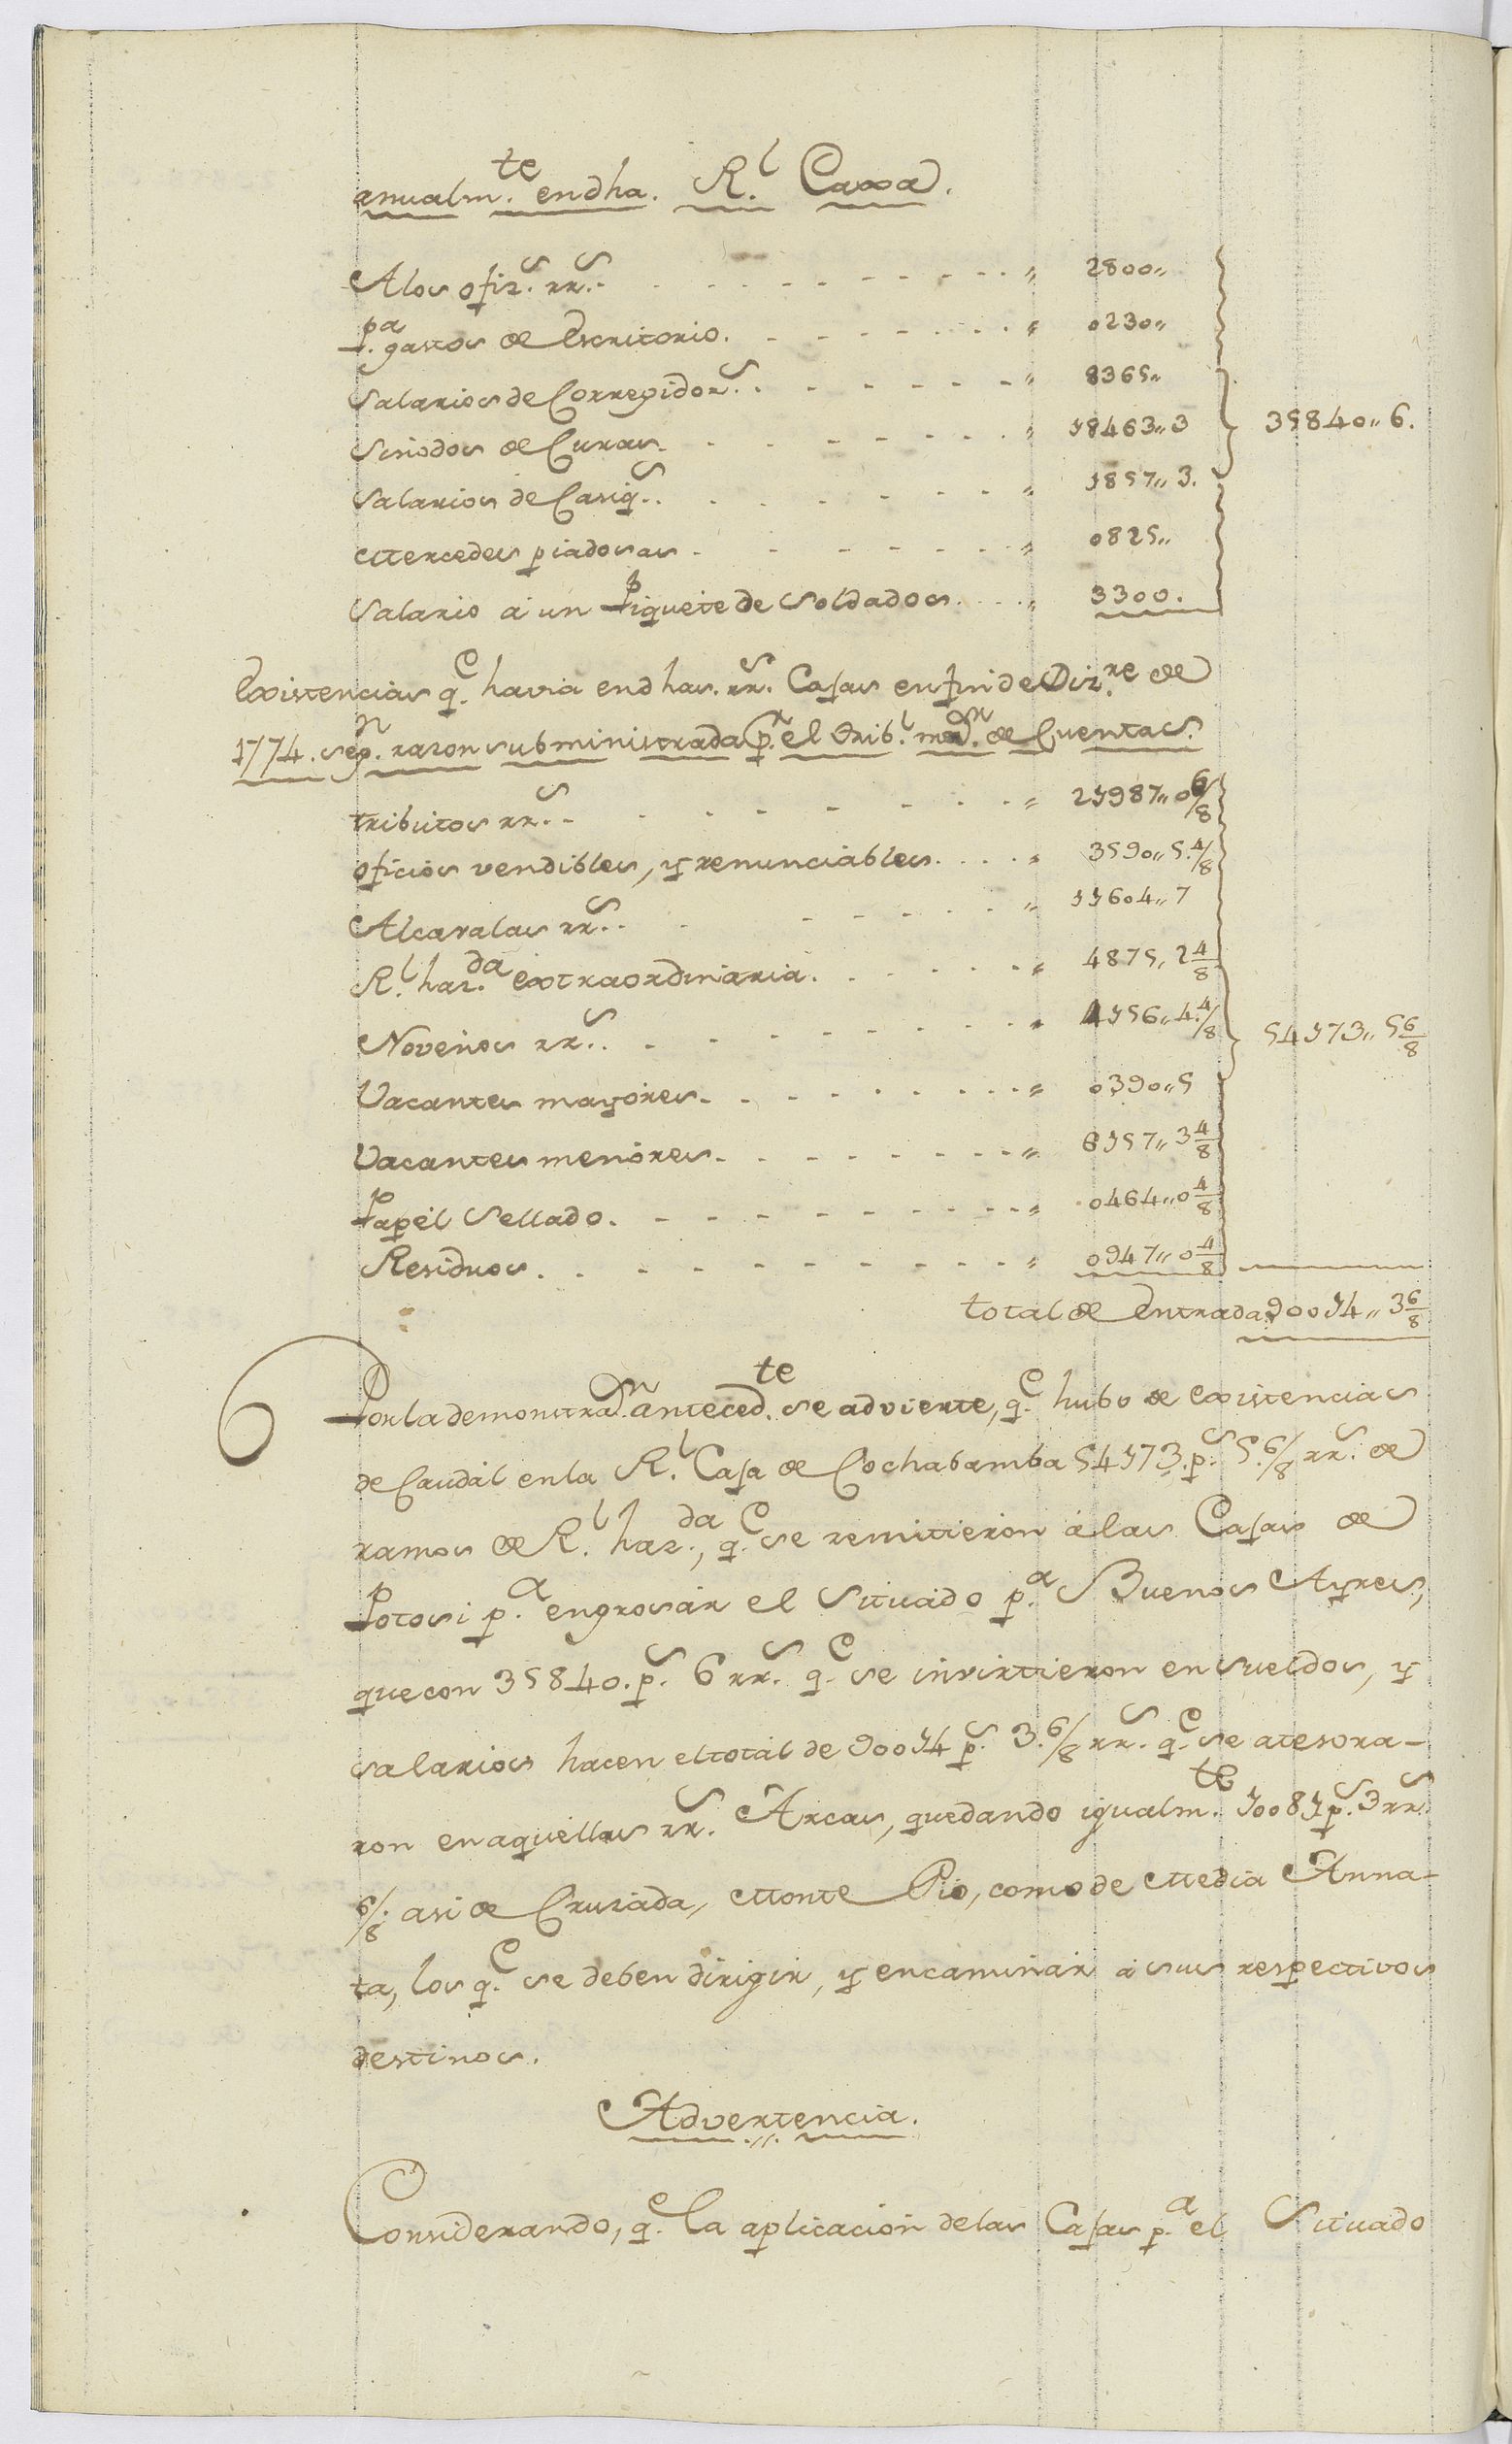 anualm.te en dha. R.l Caxa.
A los ofiz.s rr.s " 2800"
P.a gastos de Escritorio. " 0230"
Salarios de Corregidor.s " 8365"
Sinodos de Curas. " 18463" 3 } 35840" 6.
Salarios de Casiq.s " 1857" 3.
Mercedes piadosas " 0825"
Salario a un Piquete de Soldados " 3300.
Existencias q.e havia en dhas. rr.s Cajas en fin de Diz.re de
1774. seg.n razon subministrada p.r el Trib.l ma.or de Cuentas.
tributos rr.s " 21987" 0 6/8
oficios vendibles, y renunciables " 3590" 5. 4/8
Alcavalas rr.s " 11604" 7
R.l haz.da extraordinaria " 4875" 2 4/8
Novenos rr.s " 4156" 4. 4/8 } 54173" 5 6/8
Vacantes mayores " 0390" 5
Vacantes menores " 6157" 3 4/8
Papel Sellado " 0464" 0 4/8
Residuos " 0947" 0 4/8
total de Entrada 90014" 3 6/8
6 Por la demonstra.on anteced.te se advierte, q.e hubo de existencias
de Caudal en la R.l Caja de Cochabamba 54173. p.s 5. 6/8 rr.s de
ramos de R.l haz.da, q.e se remitieron á las Cajas de
Potosi p.a engrosar el Situado p.a Buenos Ayres,
que con 35840. p.s 6 rr.s q.e se invirtieron en sueldos, y
salarios hacen el total de 90014 p.s 3. 6/8 rr.s q.e se atesora-
ron en aquellas rr.s Arcas, quedando igualm.te 10081 p.s 3 rr.s
6/8. asi de Cruzada, Monte Pio, como de Media Anna-
ta, los q.e se deben dirigir, y encaminar á sus respectivos
destinos.
Advertencia.
Considerando, q.e la aplicacion de las Cajas p.a el Situado